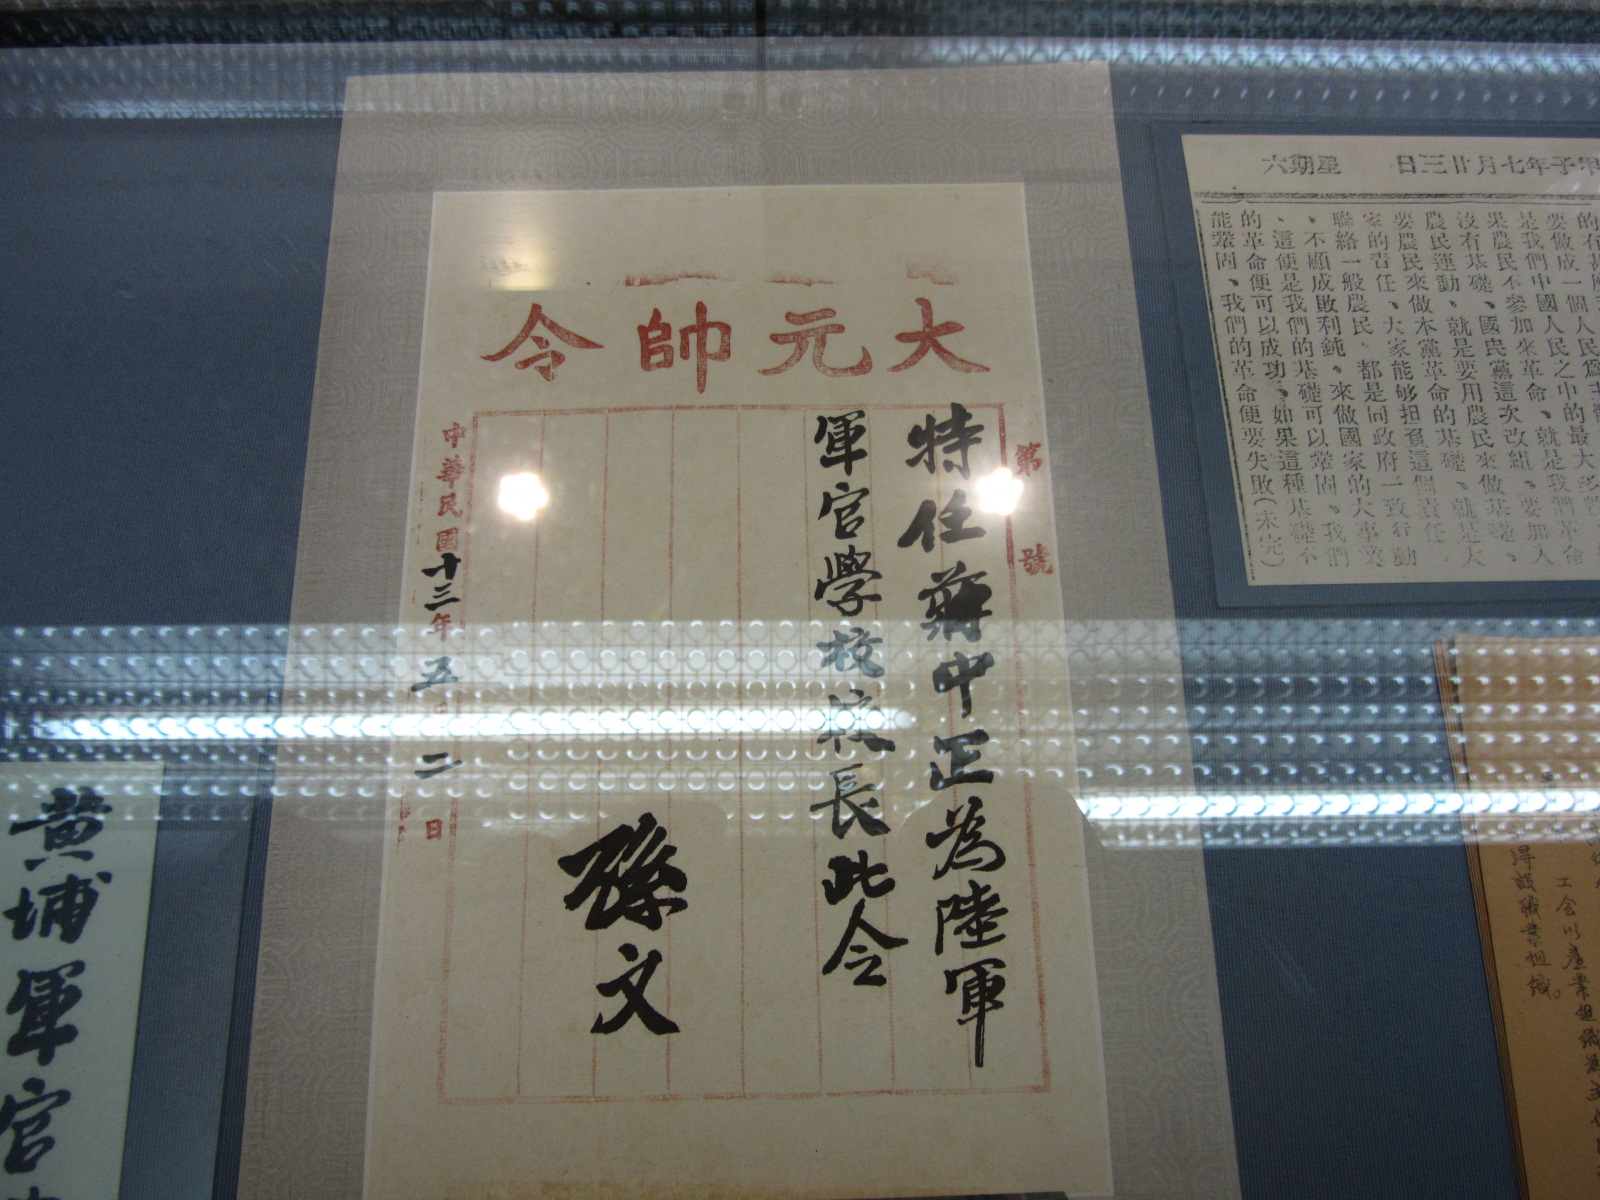 大元帥令
第 號
特任蔣中正為陸軍
軍官學校校長此令
孫文
中華民國十三年五月二日
星期六
甲子年七月廿三日
要做成一個人民為主
是我們中國人民之中的最大多數
果農民不參加來革命、就是我們革命
沒有基礎、國民黨這次改組、要加入
農民運動、就是要用農民來做基礎、
要農民來做本黨革命的基礎、就是大
家的責任、大家能够担負這個責任、
聯絡一般農民、都是同政府一致行動
、不顧成敗利鈍。來做國家的大事業
、這便是我們的基礎可以鞏固、我們
的革命便可以成功、如果這種基礎不
能鞏固、我們的革命便要失敗(未完)
黃埔軍官
得設職業組織。